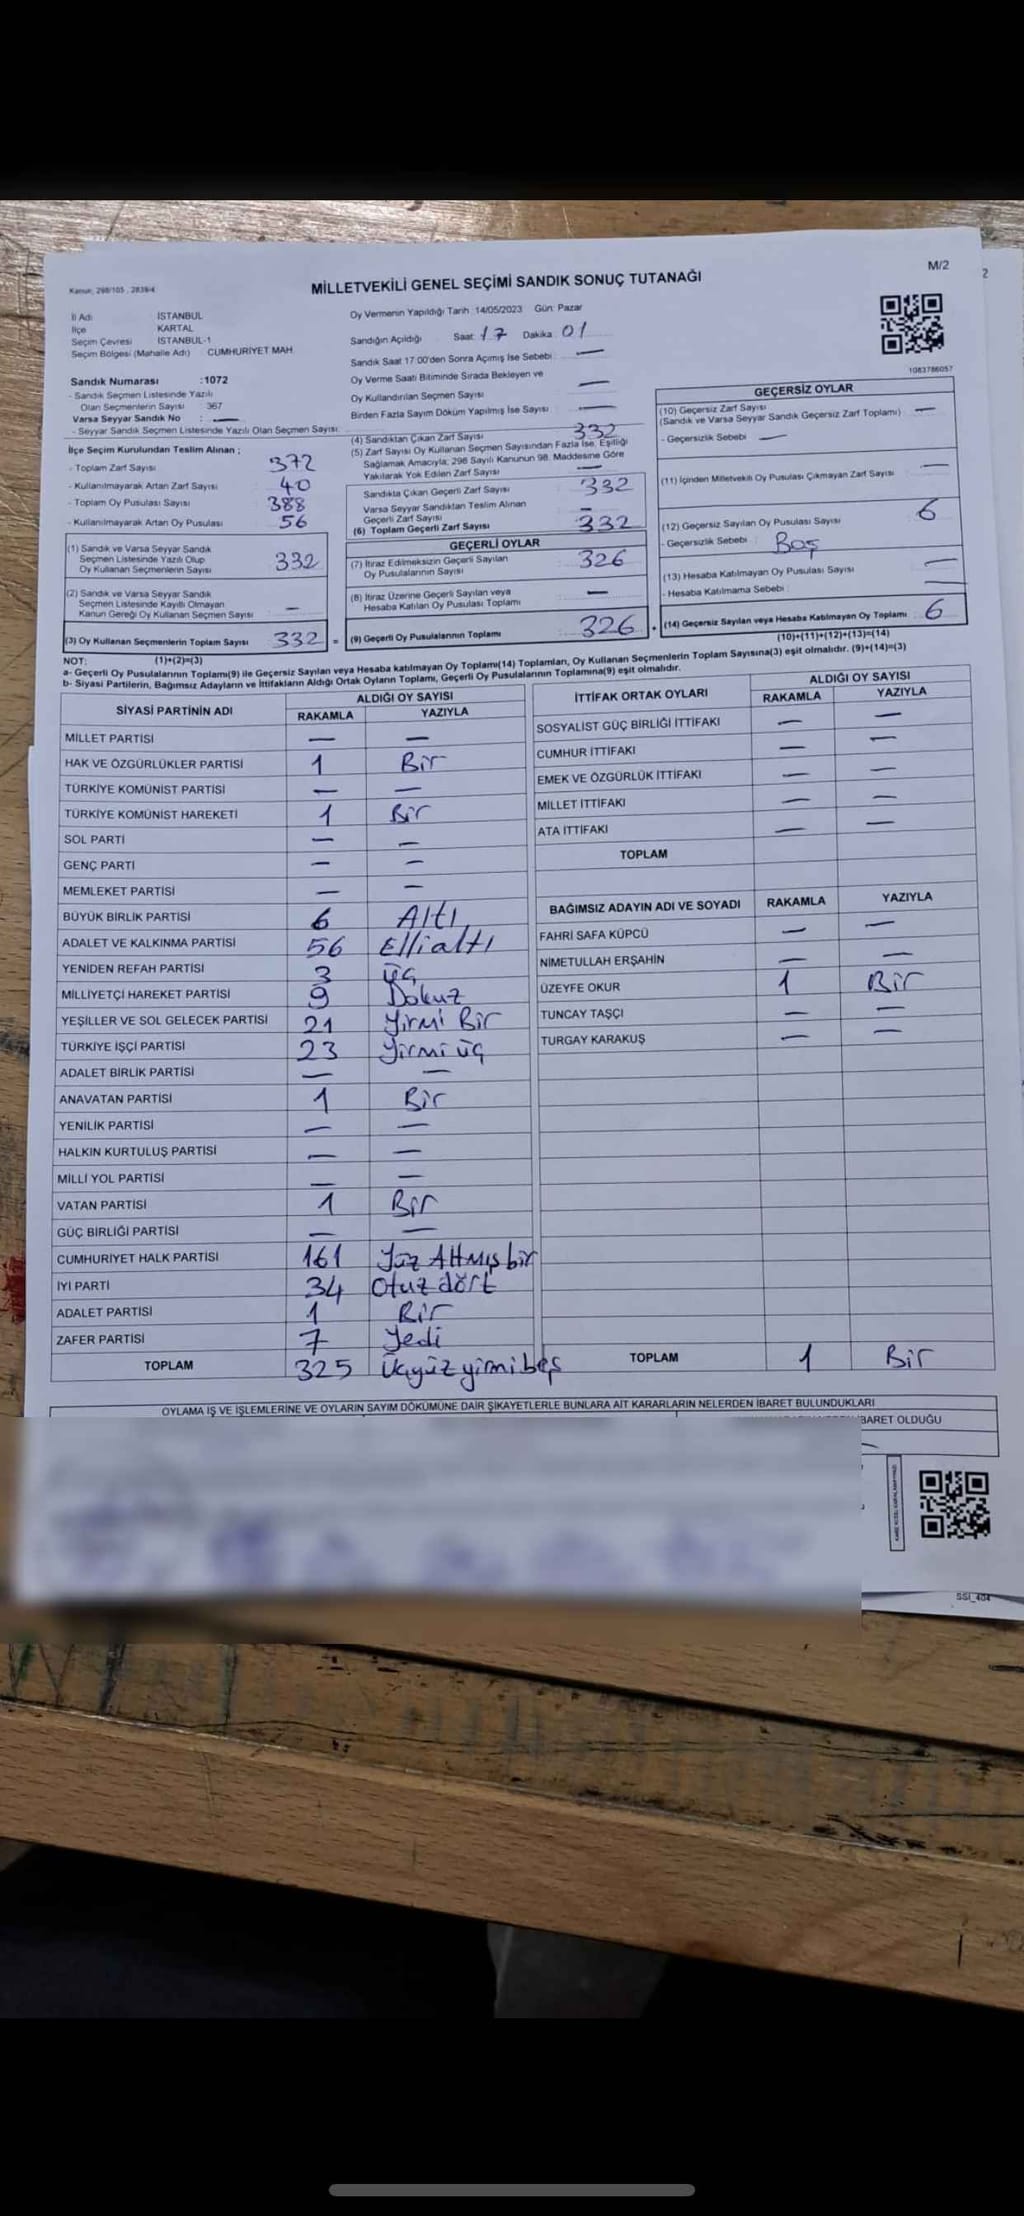 M/2
2
Kanun; 298/105 , 2839/4
MİLLETVEKİLİ GENEL SEÇİMİ SANDIK SONUÇ TUTANAĞI
İl Adı İSTANBUL
İlçe KARTAL
Seçim Çevresi İSTANBUL-1
Seçim Bölgesi (Mahalle Adı) CUMHURİYET MAH.
Sandık Numarası :1072
- Sandık Seçmen Listesinde Yazılı
Olan Seçmenlerin Sayısı : 367
Varsa Seyyar Sandık No : —
- Seyyar Sandık Seçmen Listesinde Yazılı Olan Seçmen Sayısı.
Oy Vermenin Yapıldığı Tarih :14/05/2023 Gün: Pazar
Sandığın Açıldığı Saat: 17 Dakika: 01
Sandık Saat 17:00'den Sonra Açımış İse Sebebi : —
Oy Verme Saati Bitiminde Sırada Bekleyen ve
Oy Kullandırılan Seçmen Sayısı —
Birden Fazla Sayım Döküm Yapılmış İse Sayısı —
1083786057
İlçe Seçim Kurulundan Teslim Alınan ;
- Toplam Zarf Sayısı 372
- Kullanılmayarak Artan Zarf Sayısı 40
- Toplam Oy Pusulası Sayısı 388
- Kullanılmayarak Artan Oy Pusulası 56
(1) Sandık ve Varsa Seyyar Sandık
Seçmen Listesinde Yazılı Olup
Oy Kullanan Seçmenlerin Sayısı 332
(2) Sandık ve Varsa Seyyar Sandık
Seçmen Listesinde Kayıtlı Olmayan
Kanun Gereği Oy Kullanan Seçmen Sayısı —
(3) Oy Kullanan Seçmenlerin Toplam Sayısı 332 =
(1)+(2)=(3)
(4) Sandıktan Çıkan Zarf Sayısı 332
(5) Zarf Sayısı Oy Kullanan Seçmen Sayısından Fazla İse, Eşitliği
Sağlamak Amacıyla; 298 Sayılı Kanunun 98. Maddesine Göre
Yakılarak Yok Edilen Zarf Sayısı —
Sandıkta Çıkan Geçerli Zarf Sayısı 332
Varsa Seyyar Sandıktan Teslim Alınan
Geçerli Zarf Sayısı —
(6) Toplam Geçerli Zarf Sayısı 332
GEÇERLİ OYLAR
(7) İtiraz Edilmeksizin Geçerli Sayılan
Oy Pusulalarının Sayısı 326
(8) İtiraz Üzerine Geçerli Sayılan veya
Hesaba Katılan Oy Pusulası Toplamı —
(9) Geçerli Oy Pusulalarının Toplamı 326 +
GEÇERSİZ OYLAR
(10) Geçersiz Zarf Sayısı
(Sandık ve Varsa Seyyar Sandık Geçersiz Zarf Toplamı) —
- Geçersizlik Sebebi —
(11) İçinden Milletvekili Oy Pusulası Çıkmayan Zarf Sayısı —
(12) Geçersiz Sayılan Oy Pusulası Sayısı 6
- Geçersizlik Sebebi : Boş
(13) Hesaba Katılmayan Oy Pusulası Sayısı —
- Hesaba Katılmama Sebebi : —
(14) Geçersiz Sayılan veya Hesaba Katılmayan Oy Toplamı 6
(10)+(11)+(12)+(13)=(14)
NOT:
a- Geçerli Oy Pusulalarının Toplamı(9) ile Geçersiz Sayılan veya Hesaba katılmayan Oy Toplamı(14) Toplamları, Oy Kullanan Seçmenlerin Toplam Sayısına(3) eşit olmalıdır. (9)+(14)=(3)
b- Siyasi Partilerin, Bağımsız Adayların ve İttifakların Aldığı Ortak Oyların Toplamı, Geçerli Oy Pusulalarının Toplamına(9) eşit olmalıdır.
SİYASİ PARTİNİN ADI ALDIĞI OY SAYISI
RAKAMLA YAZIYLA
MİLLET PARTİSİ — —
HAK VE ÖZGÜRLÜKLER PARTİSİ 1 Bir
TÜRKİYE KOMÜNİST PARTİSİ — —
TÜRKİYE KOMÜNİST HAREKETİ 1 Bir
SOL PARTİ — —
GENÇ PARTİ — —
MEMLEKET PARTİSİ — —
BÜYÜK BİRLİK PARTİSİ 6 Altı
ADALET VE KALKINMA PARTİSİ 56 Ellialtı
YENİDEN REFAH PARTİSİ 3 üç
MİLLİYETÇİ HAREKET PARTİSİ 9 Dokuz
YEŞİLLER VE SOL GELECEK PARTİSİ 21 Yirmi Bir
TÜRKİYE İŞÇİ PARTİSİ 23 Yirmi üç
ADALET BİRLİK PARTİSİ — —
ANAVATAN PARTİSİ 1 Bir
YENİLİK PARTİSİ — —
HALKIN KURTULUŞ PARTİSİ — —
MİLLİ YOL PARTİSİ — —
VATAN PARTİSİ 1 Bir
GÜÇ BİRLİĞİ PARTİSİ — —
CUMHURİYET HALK PARTİSİ 161 Yüz Altmışbir
İYİ PARTİ 34 Otuzdört
ADALET PARTİSİ 1 Bir
ZAFER PARTİSİ 7 Yedi
TOPLAM 325 Üçyüzyirmibeş
İTTİFAK ORTAK OYLARI ALDIĞI OY SAYISI
RAKAMLA YAZIYLA
SOSYALİST GÜÇ BİRLİĞİ İTTİFAKI — —
CUMHUR İTTİFAKI — —
EMEK VE ÖZGÜRLÜK İTTİFAKI — —
MİLLET İTTİFAKI — —
ATA İTTİFAKI — —
TOPLAM
BAĞIMSIZ ADAYIN ADI VE SOYADI RAKAMLA YAZIYLA
FAHRİ SAFA KÜPCÜ — —
NİMETULLAH ERŞAHİN — —
ÜZEYFE OKUR 1 Bir
TUNCAY TAŞÇI — —
TURGAY KARAKUŞ — —
TOPLAM 1 Bir
OYLAMA İŞ VE İŞLEMLERİNE VE OYLARIN SAYIM DÖKÜMÜNE DAİR ŞİKAYETLERLE BUNLARA AİT KARARLARIN NELERDEN İBARET BULUNDUKLARI
BARET OLDUĞU
SSİ_404